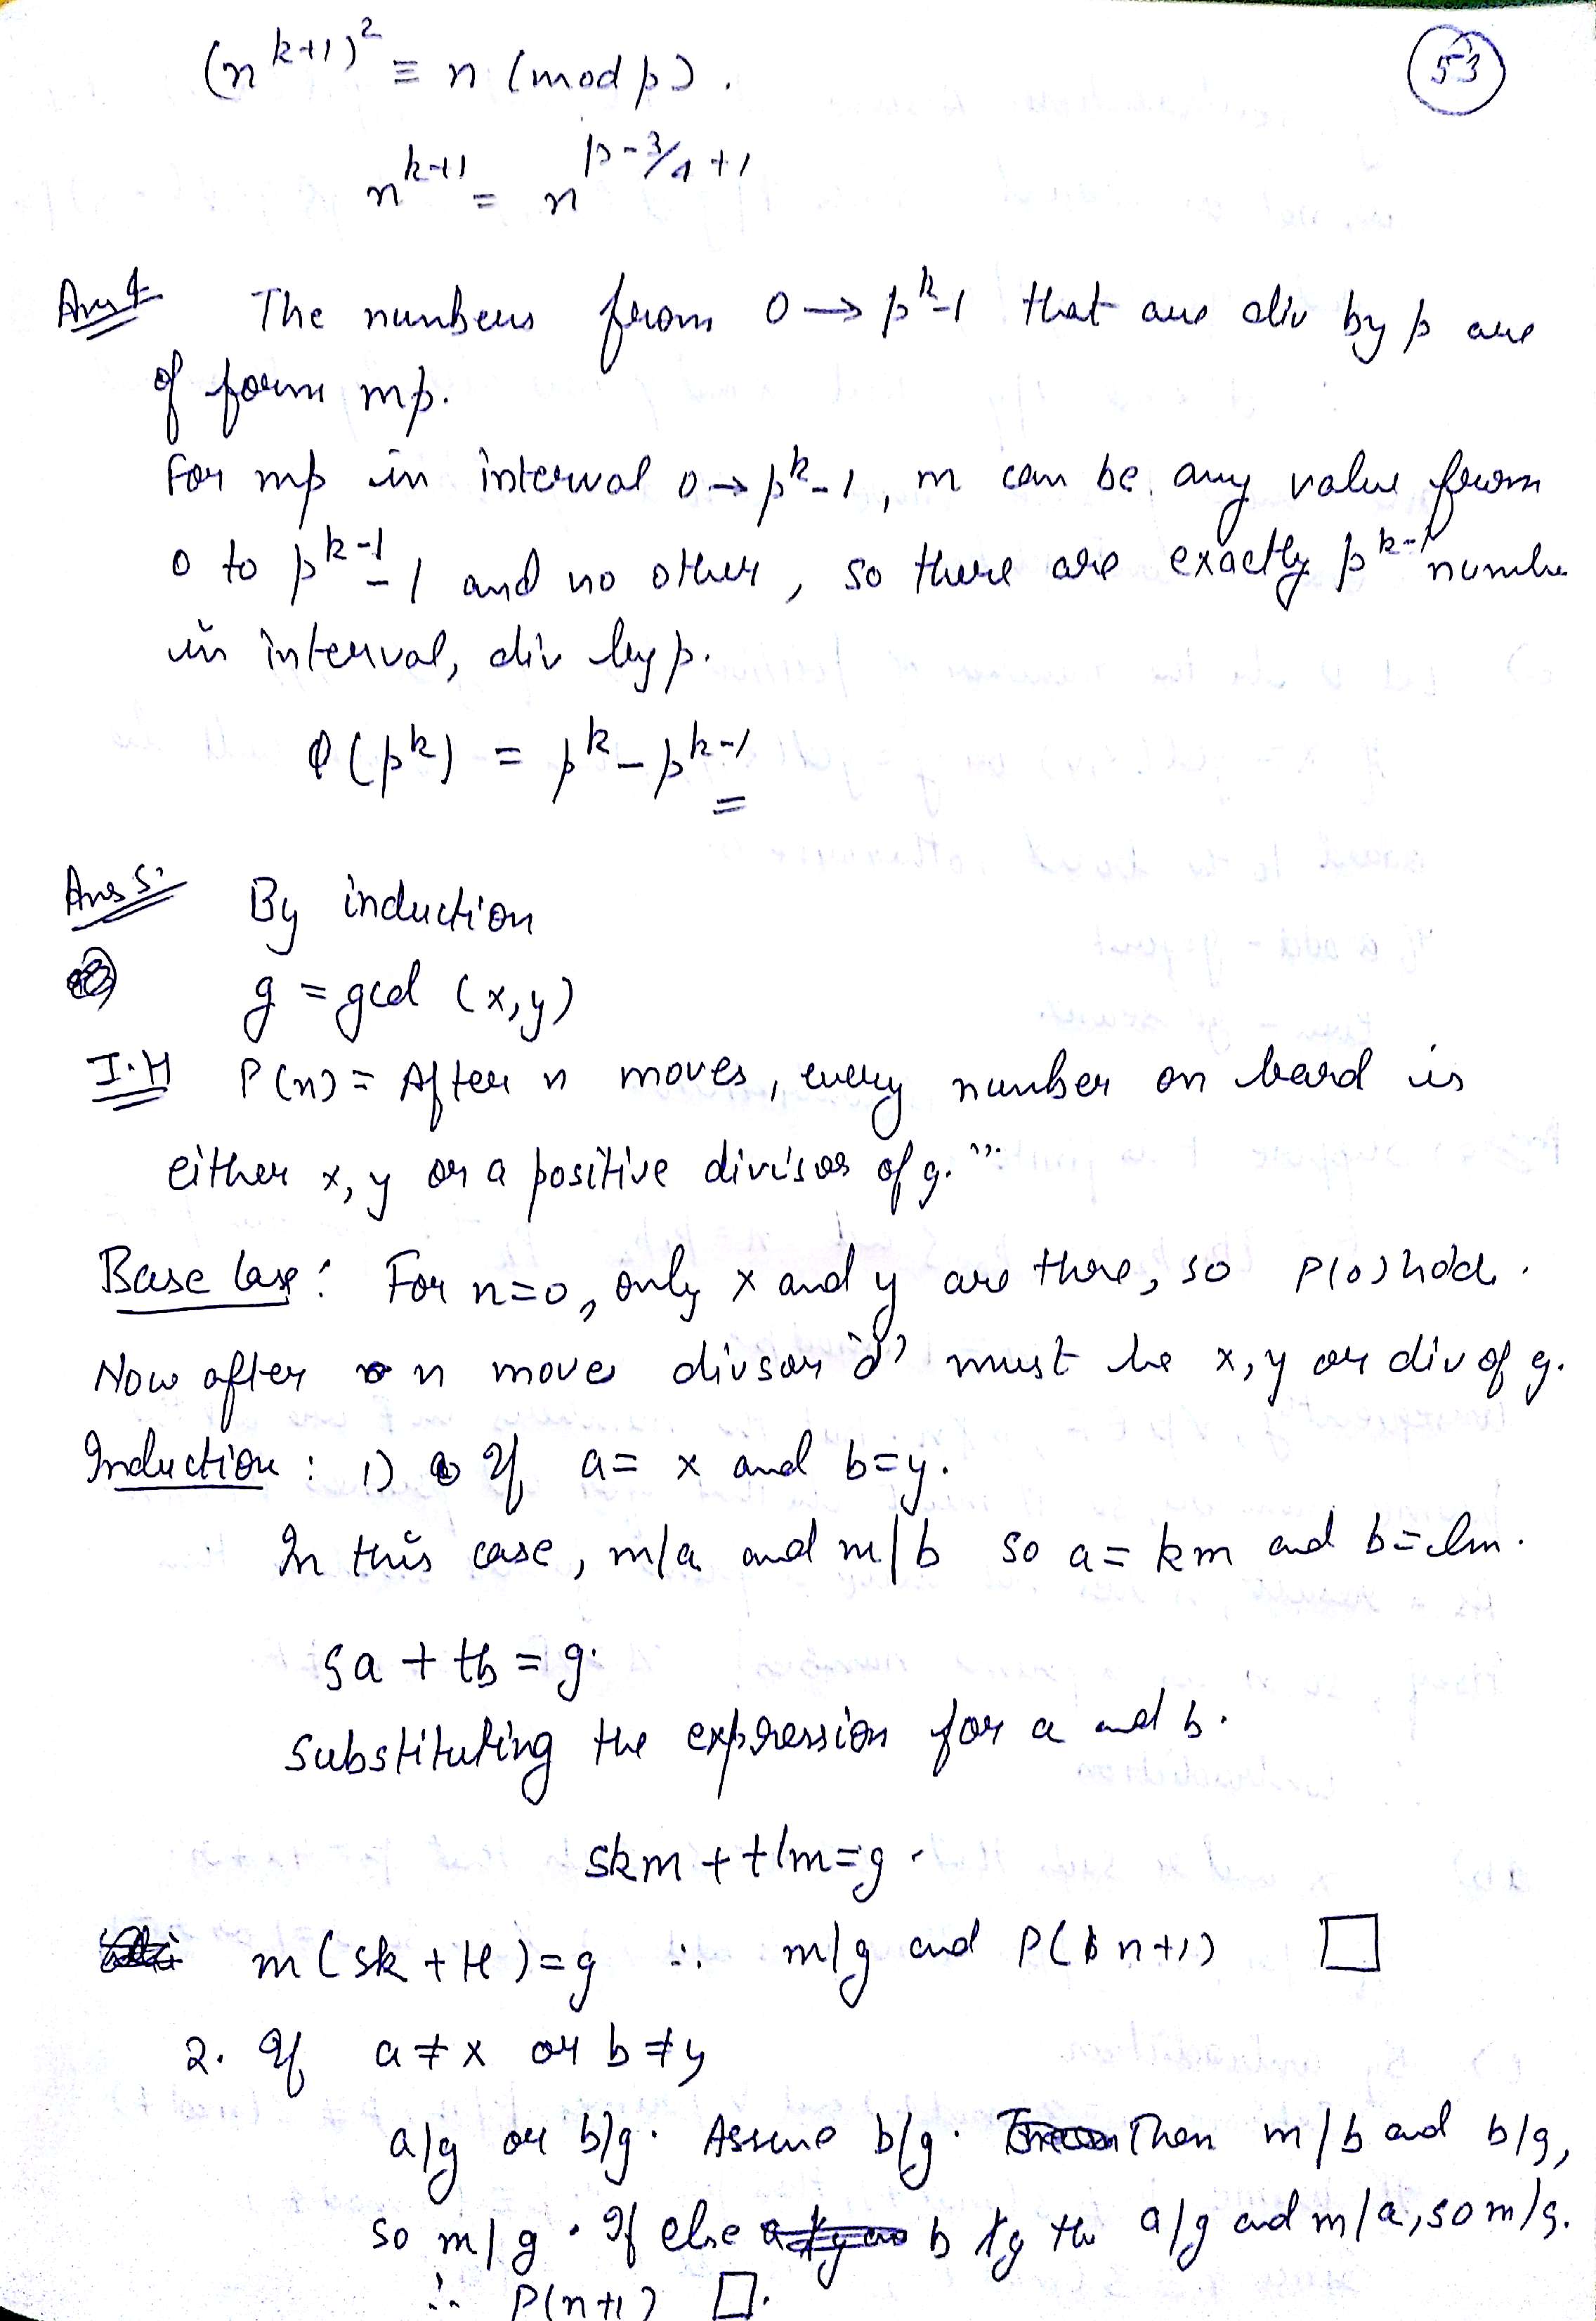 53
(n^{k+1})^2 ≡ n (mod p).
n^{k+1} = n^{p-3/4+1}
Ans 4 The numbers from 0 → p^k-1 that are div by p are
of form mp.
For mp in interval 0 → p^k-1, m can be any value from
0 to p^{k-1}-1 and no other, so there are exactly p^{k-1} numbe
in interval, div by p.
Φ(p^k) = p^k - p^{k-1}
Ans 5. By induction
g = gcd (x,y)
I.H P(n) = After n moves, every number on board is
either x, y or a positive divisor of g."
Base Case: For n=0, only x and y are there, so P(0) hold.
Now after n moves divsor 'd' must be x, y or div of g.
Induction: 1) If a = x and b=y.
In this case, m/a and m/b so a = km and b=lm.
sa + tb = g.
Substituting the expression for a and b.
skm + tlm=g.
m(sk + tl)=g ∴ m/g and P(n+1) □
2. If a ≠ x or b ≠ y
a/g or b/g. Assume b/g. Then m/b and b/g,
so m/g. If else b ∤ g the a/g and m/a, so m/g.
∴ P(n+1) □.